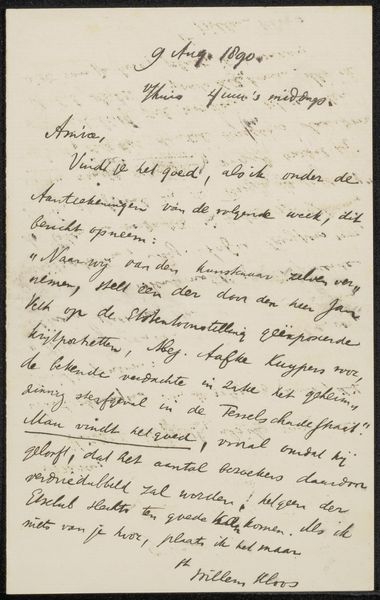 9 Aug. 1890.
thuis 4 uur 's middags.
Amice,
Vindt je het goed, als ik onder de
Aanteekeningen van de volgende week, dit
bericht opneem:
"Naar wij van den kunstenaar zelven ver-
nemen, stelt een der door den heer Jan
Veth op de Etstentoonstelling geëxposeerde
krijtportretten, Mej. Aafke Kuypers voor,
de bekende verdachte in zake het geheim-
zinnig sterfgeval in de Tesselschadestraat"
Man vindt het goed, vooral omdat hij
gelooft, dat het aantal bezoekers daardoor
verdriedubbeld zal worden, hetgeen der
Etsclub slechts ten goede kan komen. Als ik
niets van je hoor, plaats ik het maar
Willem Kloos